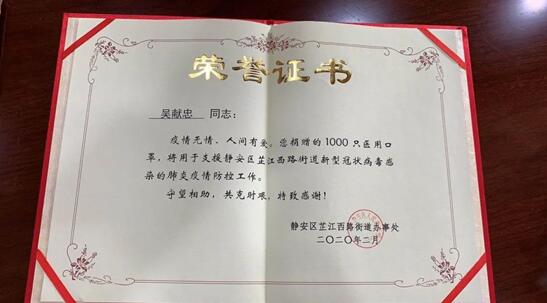 荣誉证书
吴献忠 同志：
疫情无情、人间有爱。您捐赠的1000只医用口
罩，将用于支援静安区芷江西路街道新型冠状病毒感
染的肺炎疫情防控工作。
守望相助，共克时艰，特致感谢！
静安区芷江西路街道办事处
二〇二〇年二月